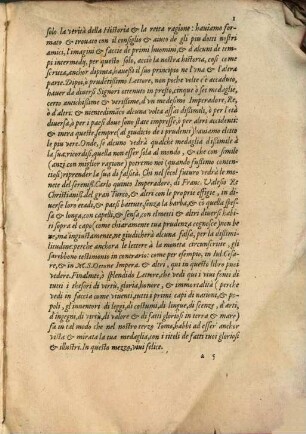 1
solo la verità della Historia & la retta ragione: habbiamo for
mate & trouate con il consiglio & aiuto de gli piu dotti nostri
amici, l'imagini & faccie di primi huomini, e d'alcuni de tem
pi intermedij, per questo solo, accio la nostra historia, cosi come
scritta, anchor dipinta, hauessi il suo principio ne l'vna & l'altra
parte. Dopo, o prudentissimo Lettore, non poche volte c'è accaduto,
hauer da diuersi Signori ottenuto in presto, cinque ò sei medaglie,
certo antichissime & verissime, d'vn medesimo Imperadore, Re,
ò d'altri: & nientedimanco alcuna volta assai dissimili, ò per l'età
diuersa, ò per i paesi doue sono state impresse, ò per altri accidenti:
& tutta questo sempre (al giudicio de i prudenti) habbiamo eletto
le piu vere. Onde, se alcuno vedrà qualche medaglia dissimil à
la sua, ricordisi, quella non esser sola al mondo, & che con simile
(anzi con miglior ragione) potremo noi (quando fussimo conten
tiosi) reprender la sua di falsità. Chi nel secol futuro vedrà le mo
nete del sereniss. Carlo quinto Imperadore, di Franc. Valesio Re
Christianiss. del gran Turco, & altri con le proprie effigie, in di-
uerse loro etadi, & paesi battute, senza la barba, & ei quella spes
sa & lunga, con capelli, & senza, con elmetti & altri diuersi habi
ti sopra di capo, come chiaramente tua prudenza cognosce hog-
gi, ma ingiustamente, ne giudicherà alcuna falsa, per la dissimi-
litudine, perche anchora le lettere à la moneta circonscritte, gli
sarebbono testimonio in contrario: come per esempio, in Iul. Cesa-
re, & in M. S. Ottone Impera. & altri, qui in questo libro puoi
vedere. Finalmente, ò splendido Lettore, che vedi qui i vini fonti di
tutti i thesori di virtù, gloria, honore, & immortalità (perche
vedi in faccia come viuenti, tutti i primi capi di natura, & po-
poli, gl'inuentori di leggi, di costumi, di lingue, di scienze, d'arti,
d'ingegni, di virtù, di valore & di fatti gloriosi in terra & mar)
fa in tal modo che nel nostro terzo Tomo, habbi ad esser anchor
vista & mirata la tua medaglia, con i titoli de fatti tuoi gloriosi
& illustri. In questo mezzo, viui felice.
a 5